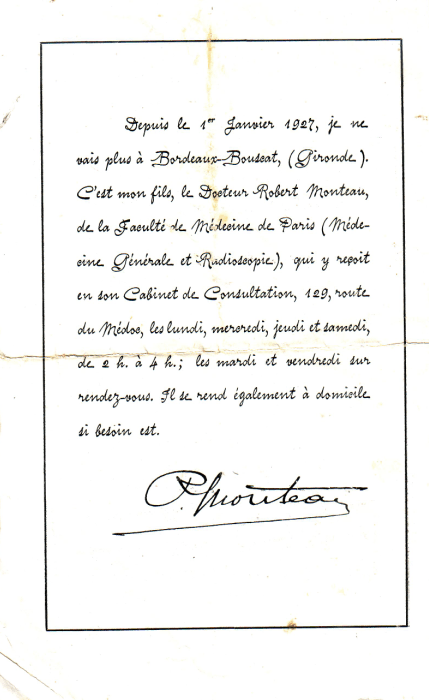 Depuis le 1er Janvier 1927, je ne
vais plus à Bordeaux-Bouscat, (Gironde).
C'est mon fils, le Docteur Robert Monteau,
de la Faculté de Médecine de Paris (Méde-
cine Générale et Radioscopie), qui y reçoit
en son Cabinet de Consultation, 129, route
du Médoc, les lundi, mercredi, jeudi et samedi,
de 2 h. à 4 h.; les mardi et vendredi sur
rendez-vous. Il se rend également à domicile
si besoin est.
P. Monteau